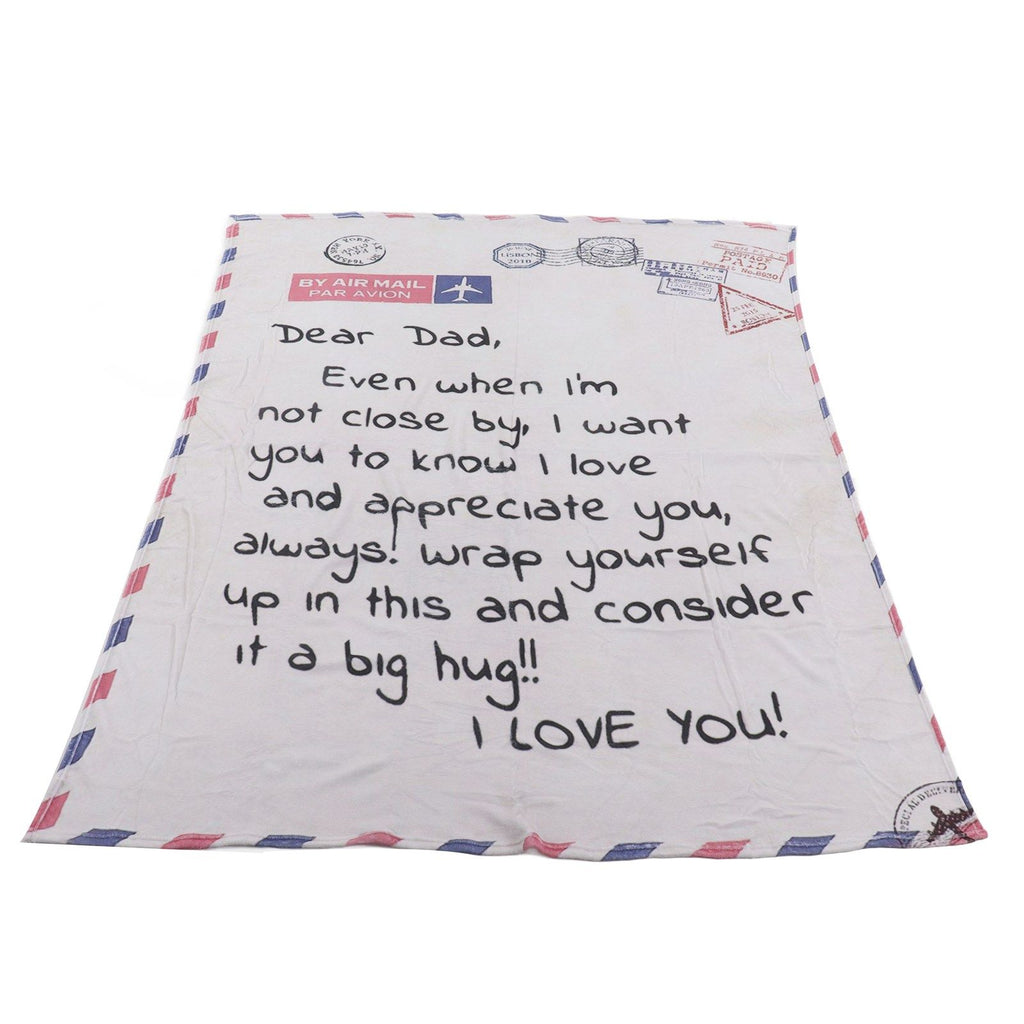 LISBON
2010
POSTAGE
PAID
Permit No.
BY AIR MAIL
PAR AVION
Dear Dad,
Even when I'm
not close by, I want
you to know I love
and appreciate you,
always! wrap yourself
up in this and consider
it a big hug!!
I LOVE YOU!